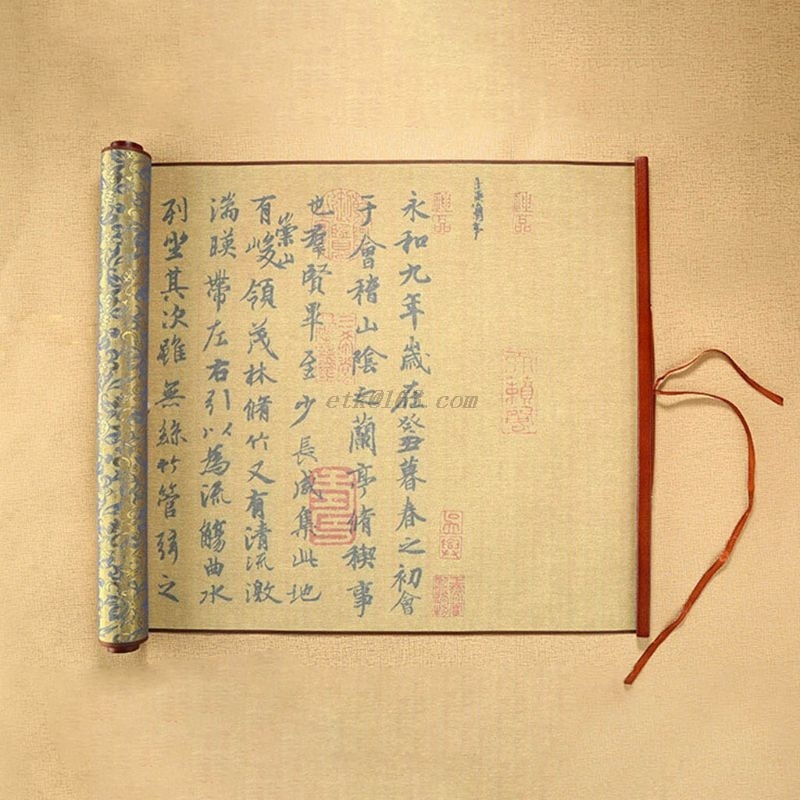 神品
神品
永和九年歲在癸丑暮春之初會
于會稽山陰之蘭亭脩稧事
也羣賢畢至少長咸集此地
崇山
有峻領茂林脩竹又有清流激
湍暎帶左右引以為流觴曲水
列坐其次雖無絲竹管弦之